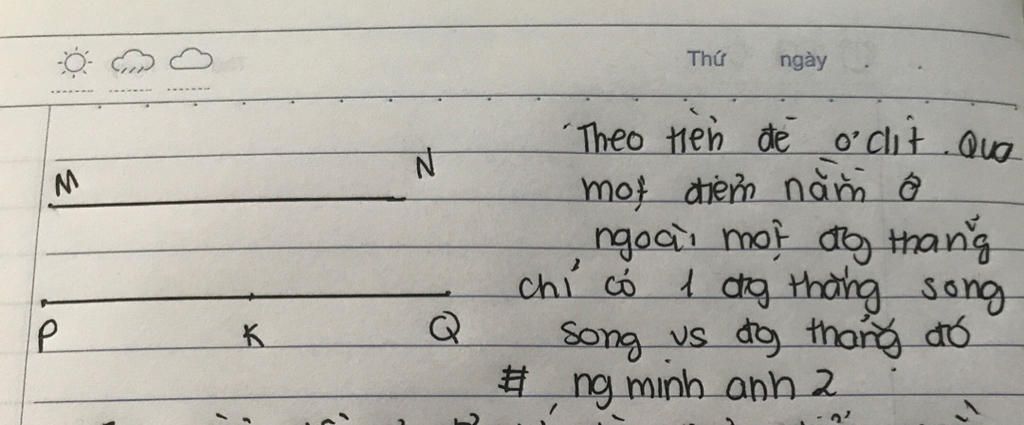 Thứ ngày
Theo tiên đề ơclit. Qua
M N
một điểm nằm ở
ngoài một đg thẳng
chỉ có 1 đg thẳng song
P K Q
song vs đg thẳng đó
# ng minh anh 2